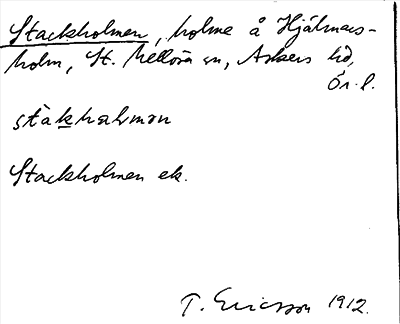 Stackholmen, holme å Hjälmars-
holm, St. Mellösa sn, Askers hd,
Ör. l.
stàkhalmən
Stackholmen ek.
T. Ericsson 1912.